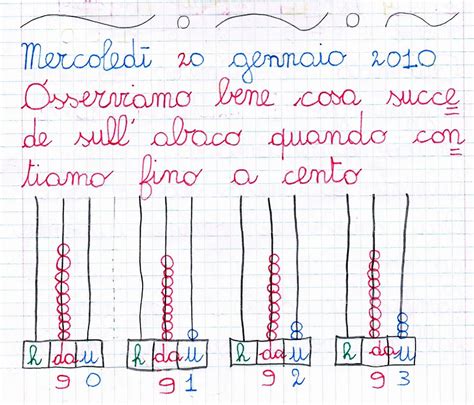 Mercoledì 20 gennaio 2010
Osserviamo bene cosa succe
de sull' abaco quando con
tiamo fino a cento
h da u h da u h da u h da u
9 0 9 1 9 2 9 3